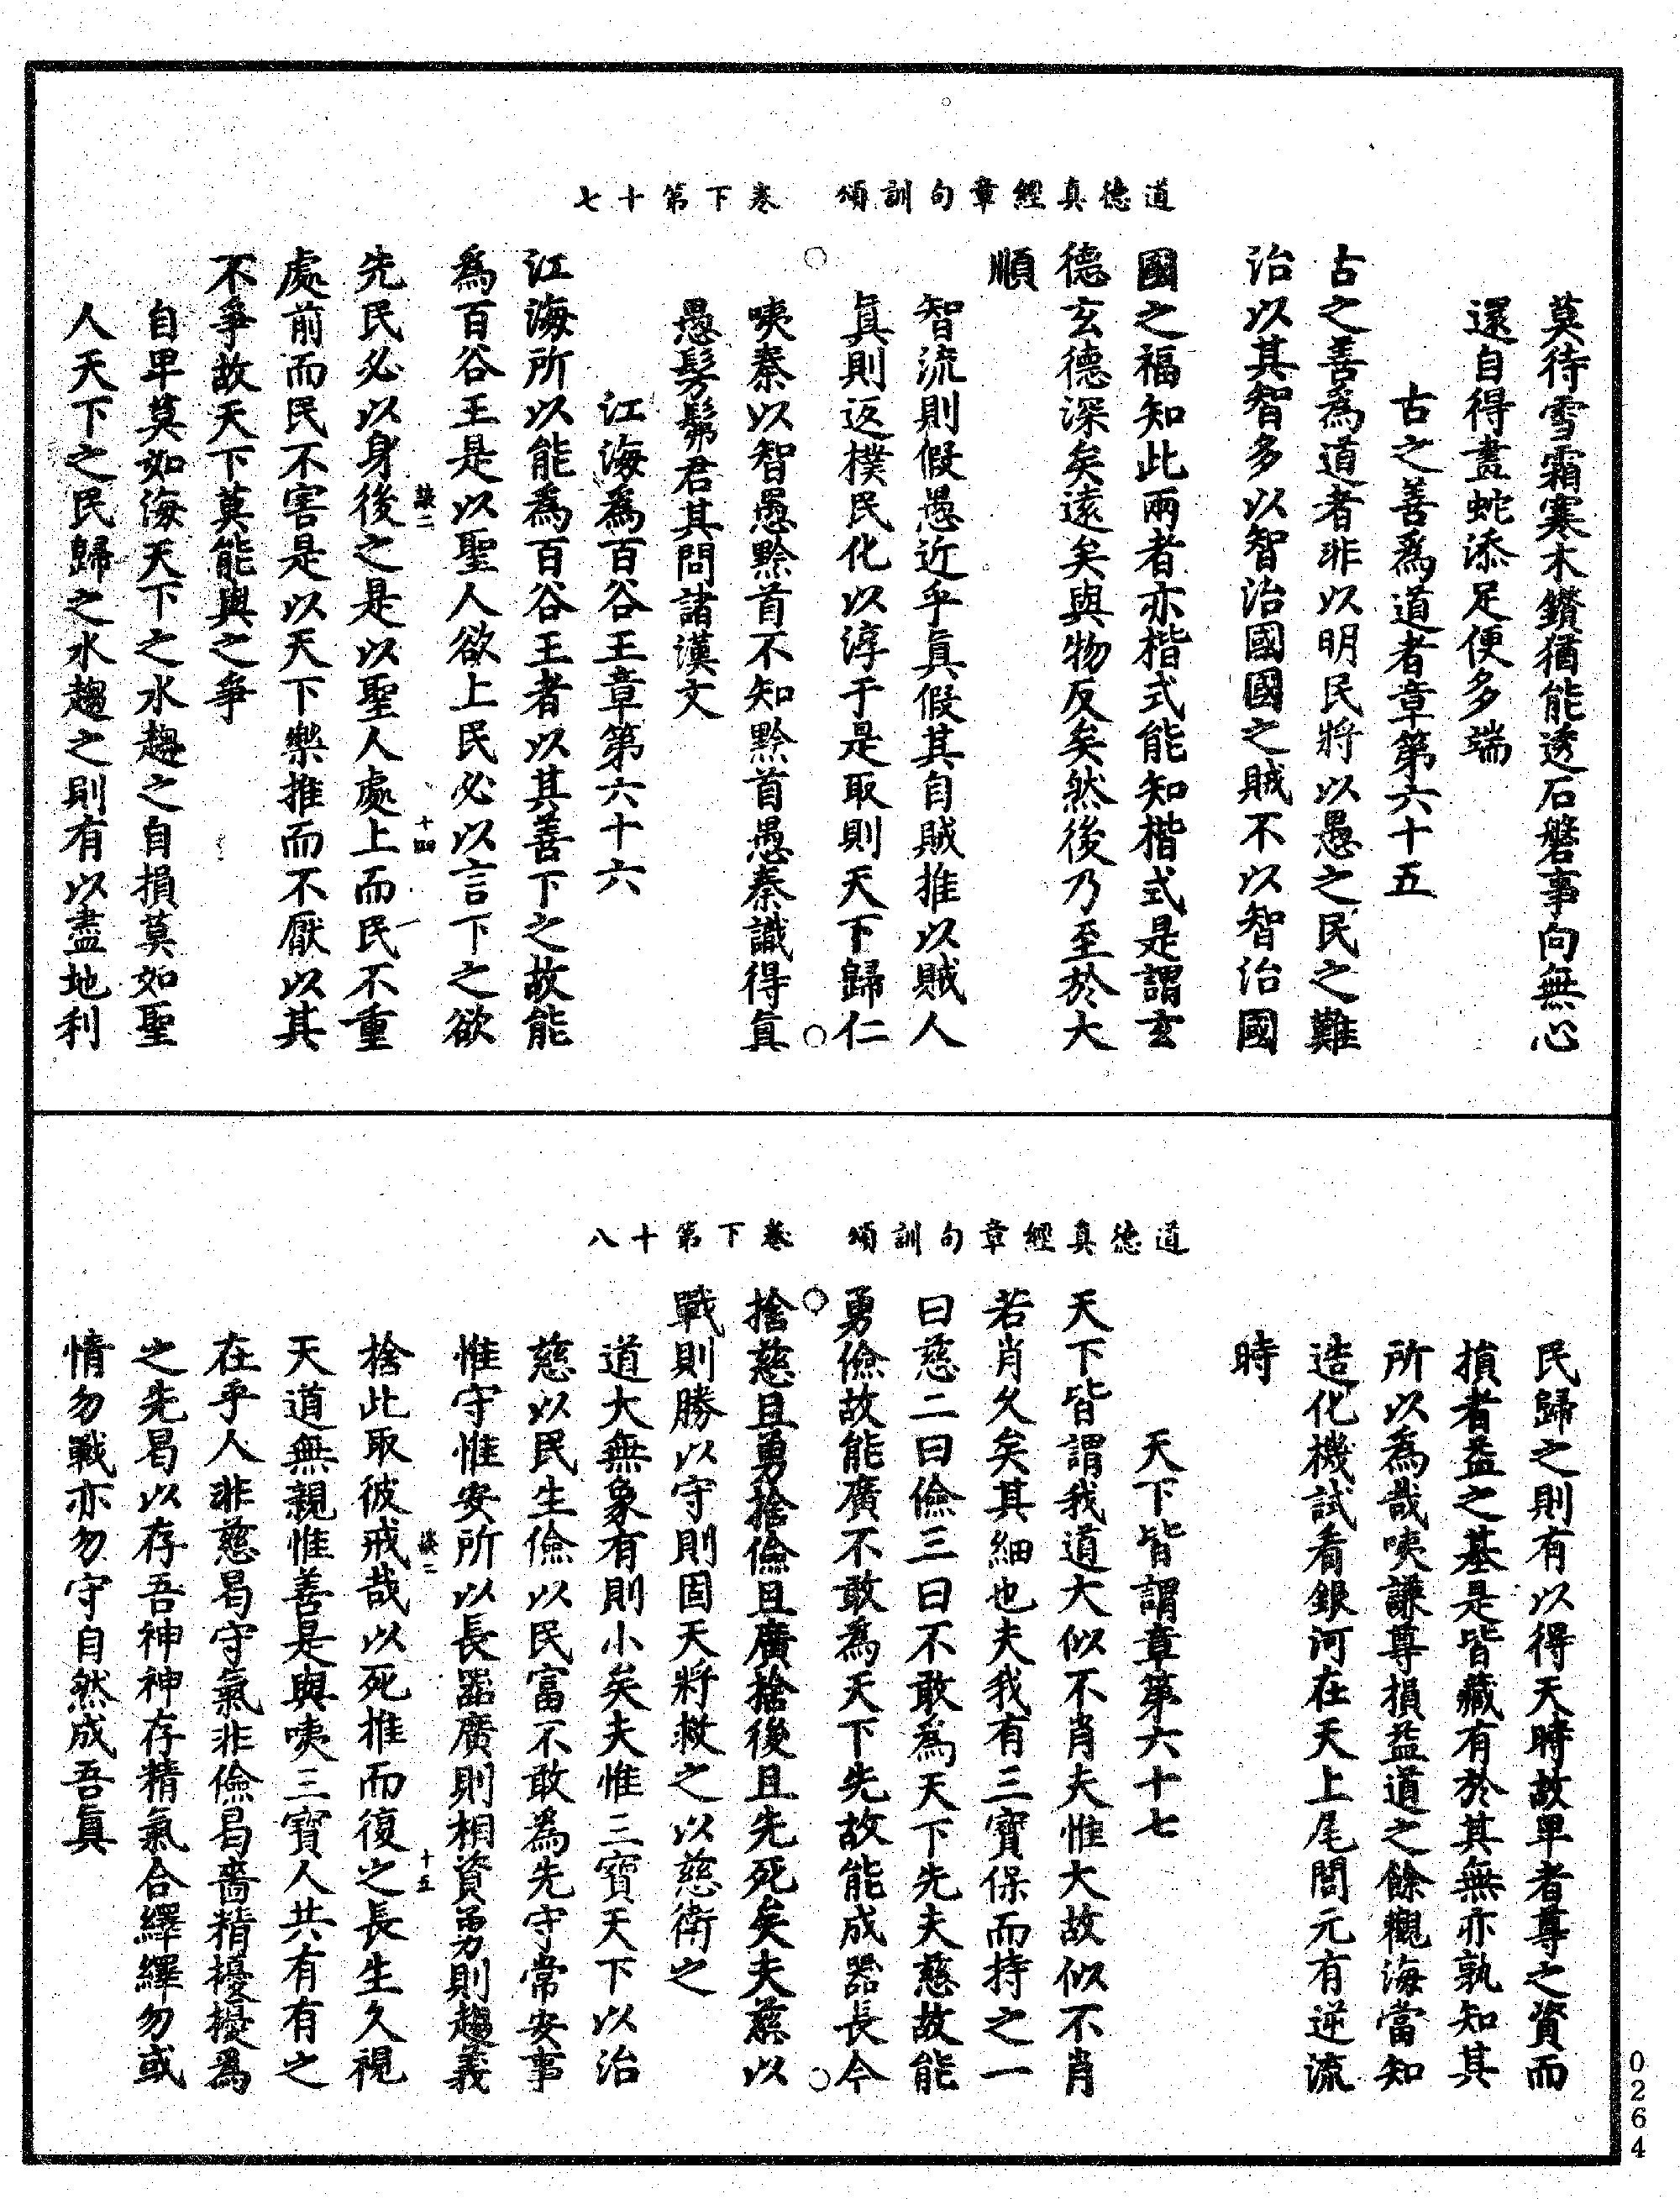 道德真經章句訓頌　卷下第十七
莫待雪霜寒木鑽猶能透石磐事向無心
還自得畫蛇添足便多端
古之善為道者章第六十五
古之善為道者非以明民將以愚之民之難
治以其智多以智治國國之賊不以智治國
國之福知此兩者亦楷式能知楷式是謂玄
德玄德深矣遠矣與物反矣然後乃至於大
順
智流則假愚近乎真假其自賊推以賊人
真則返樸民化以淳于是取則天下歸仁
咦秦以智愚黔首不知黔首愚秦識得真
愚髣髴君其問諸漢文
江海為百谷王章第六十六
江海所以能為百谷王者以其善下之故能
為百谷王是以聖人欲上民必以言下之欲
談二　十四
先民必以身後之是以聖人處上而民不重
處前而民不害是以天下樂推而不厭以其
不爭故天下莫能與之爭
自卑莫如海天下之水趨之自損莫如聖
人天下之民歸之水趨之則有以盡地利
道德真經章句訓頌　卷下第十八
民歸之則有以得天時故卑者尊之資而
損者益之基是皆藏有於其無亦孰知其
所以為哉咦謙尊損益道之餘觀海當知
造化機試看銀河在天上尾閭元有逆流
時
天下皆謂章第六十七
天下皆謂我道大似不肖夫惟大故似不肖
若肖久矣其細也夫我有三寶保而持之一
曰慈二曰儉三曰不敢為天下先夫慈故能
勇儉故能廣不敢為天下先故能成器長今
捨慈且勇捨儉且廣捨後且先死矣夫慈以
戰則勝以守則固天將救之以慈衛之
道大無象有則小矣夫惟三寶天下以治
慈以民生儉以民富不敢為先守常安事
惟守惟安所以長器廣則相資勇則趨義
談二　十五
捨此取彼戒哉以死推而復之長生久視
天道無親惟善是與咦三寶人共有有之
在乎人非慈曷守氣非儉曷嗇精擾擾為
之先曷以存吾神神存精氣合繹繹勿或
情勿戰亦勿守自然成吾真
0264